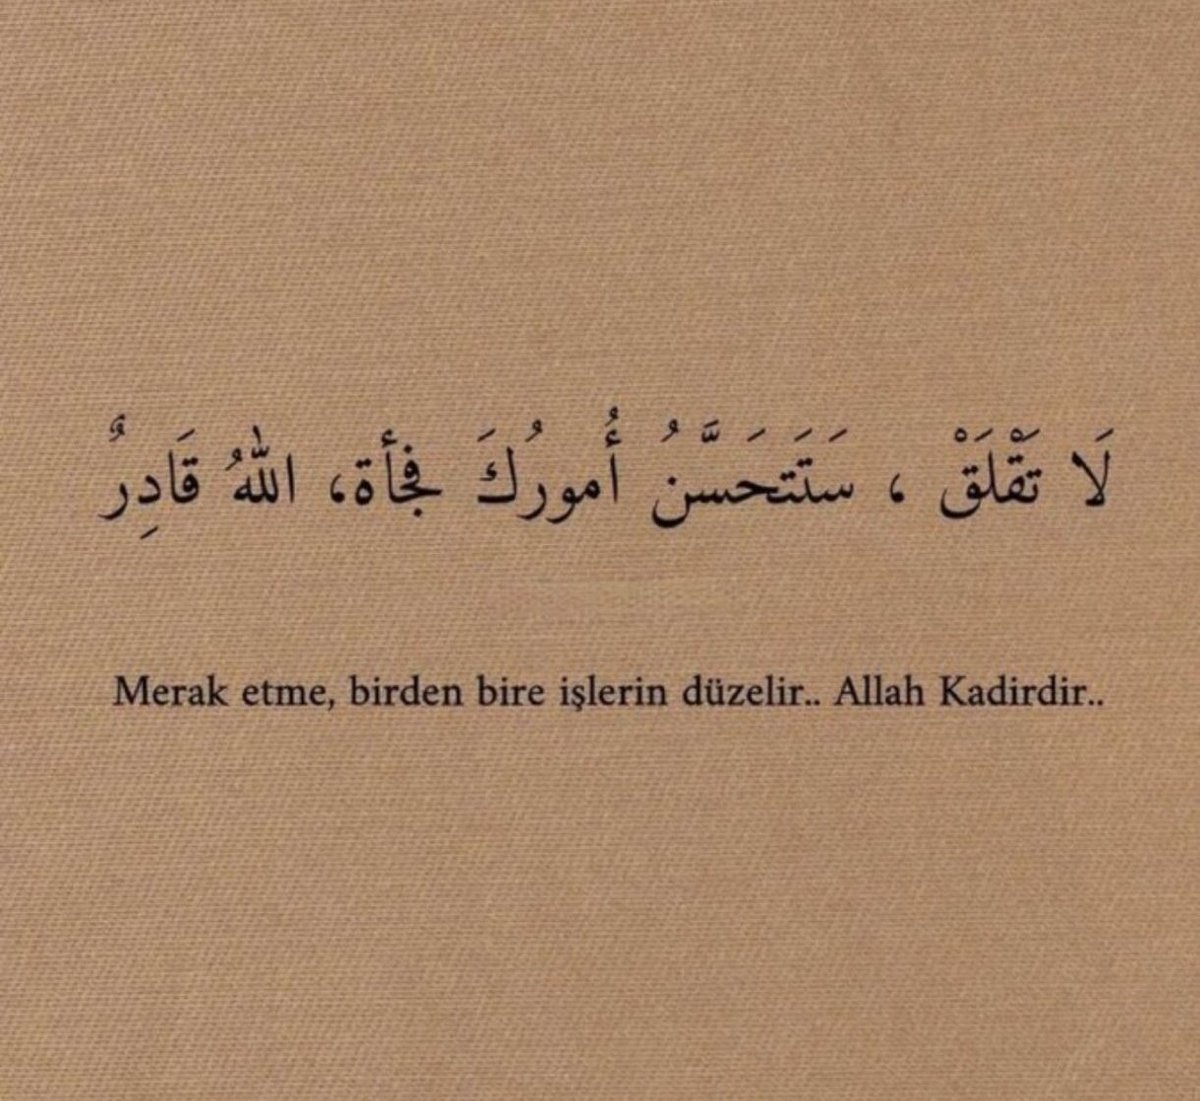 لَا تَقْلَقْ ، سَتَتَحَسَّنُ أُمورُكَ فجأة، اللهُ قَادِرٌ
Merak etme, birden bire işlerin düzelir.. Allah Kadirdir..